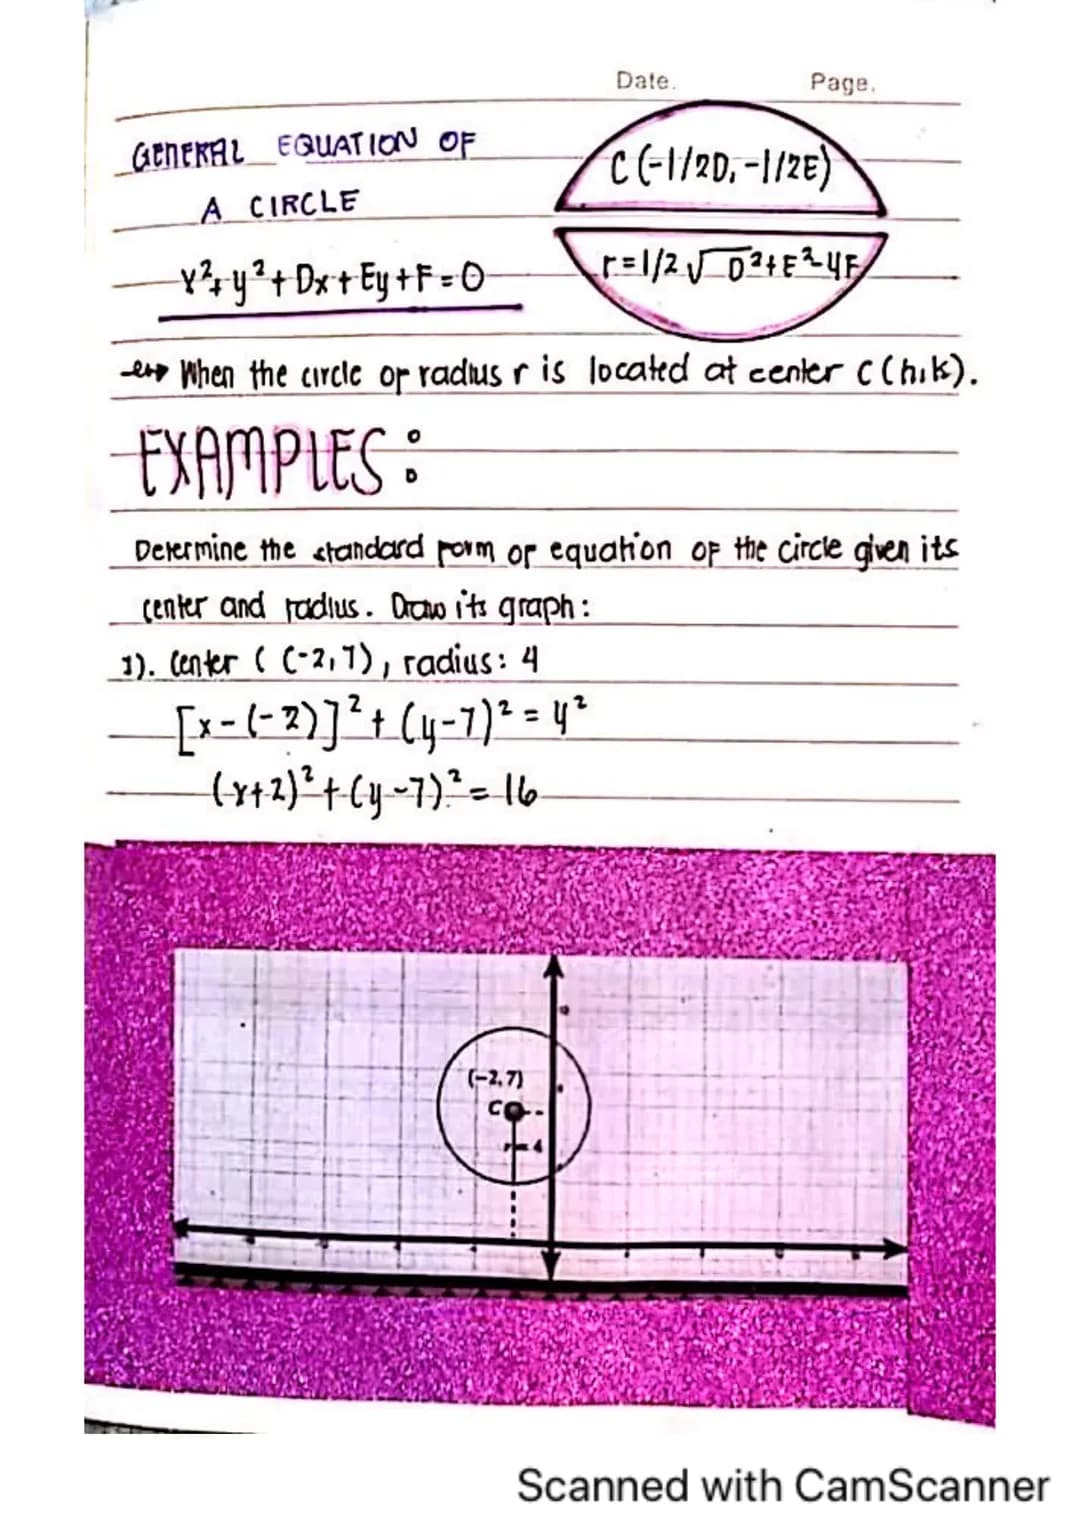 Date.
Page.
GENERAL EQUATION OF
A CIRCLE
C (-1/2D, -1/2E)
x²+y²+Dx+Ey+F=0
r=1/2√D²+E²-4F
When the circle of radius r is located at center C(h,k).
EXAMPLES:
Determine the standard form of equation of the circle given its
center and radius. Draw its graph:
1). Center ( (-2,7), radius: 4
[x-(-2)]²+(y-7)²=4²
(x+2)²+(y-7)²=16
(-2,7)
C
r=4
Scanned with CamScanner